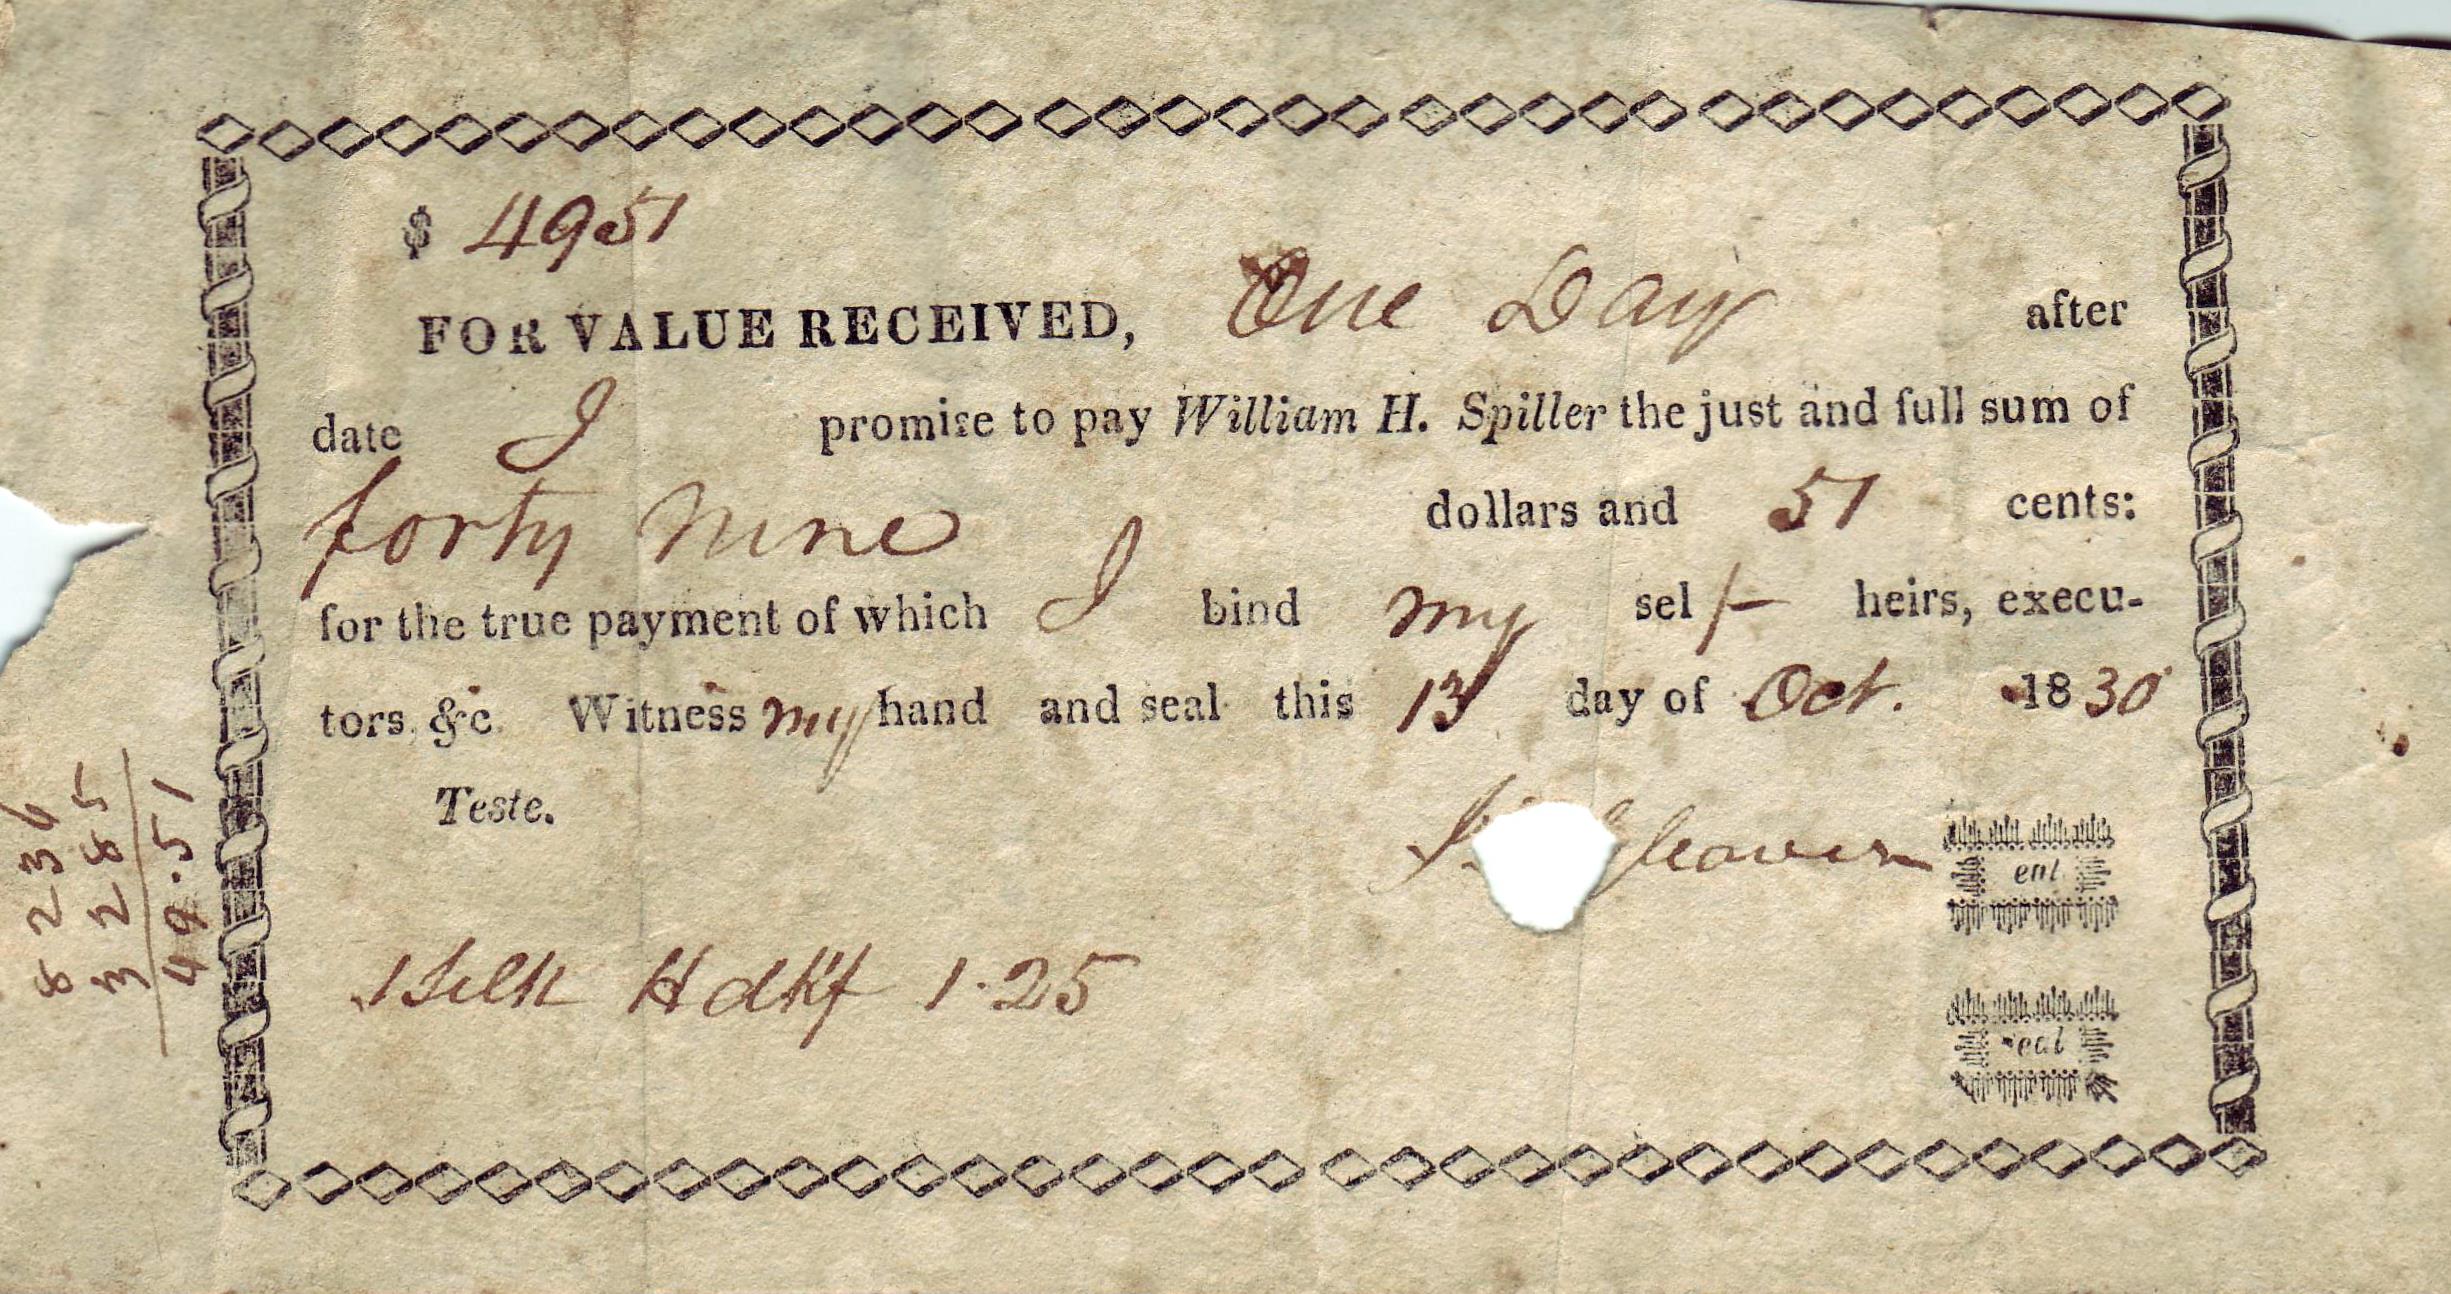 $ 4951
FOR VALUE RECEIVED, One Day after
date I promise to pay William H. Spiller the just and full sum of
forty nine dollars and 51 cents:
for the true payment of which I bind my self heirs, execu-
tors, &c. Witness my hand and seal this 13 day of Oct. 1830
Teste.
eal
eal
1 Silk Hdkf 1.25
8 2 3 6
3 2 8 5
49.51